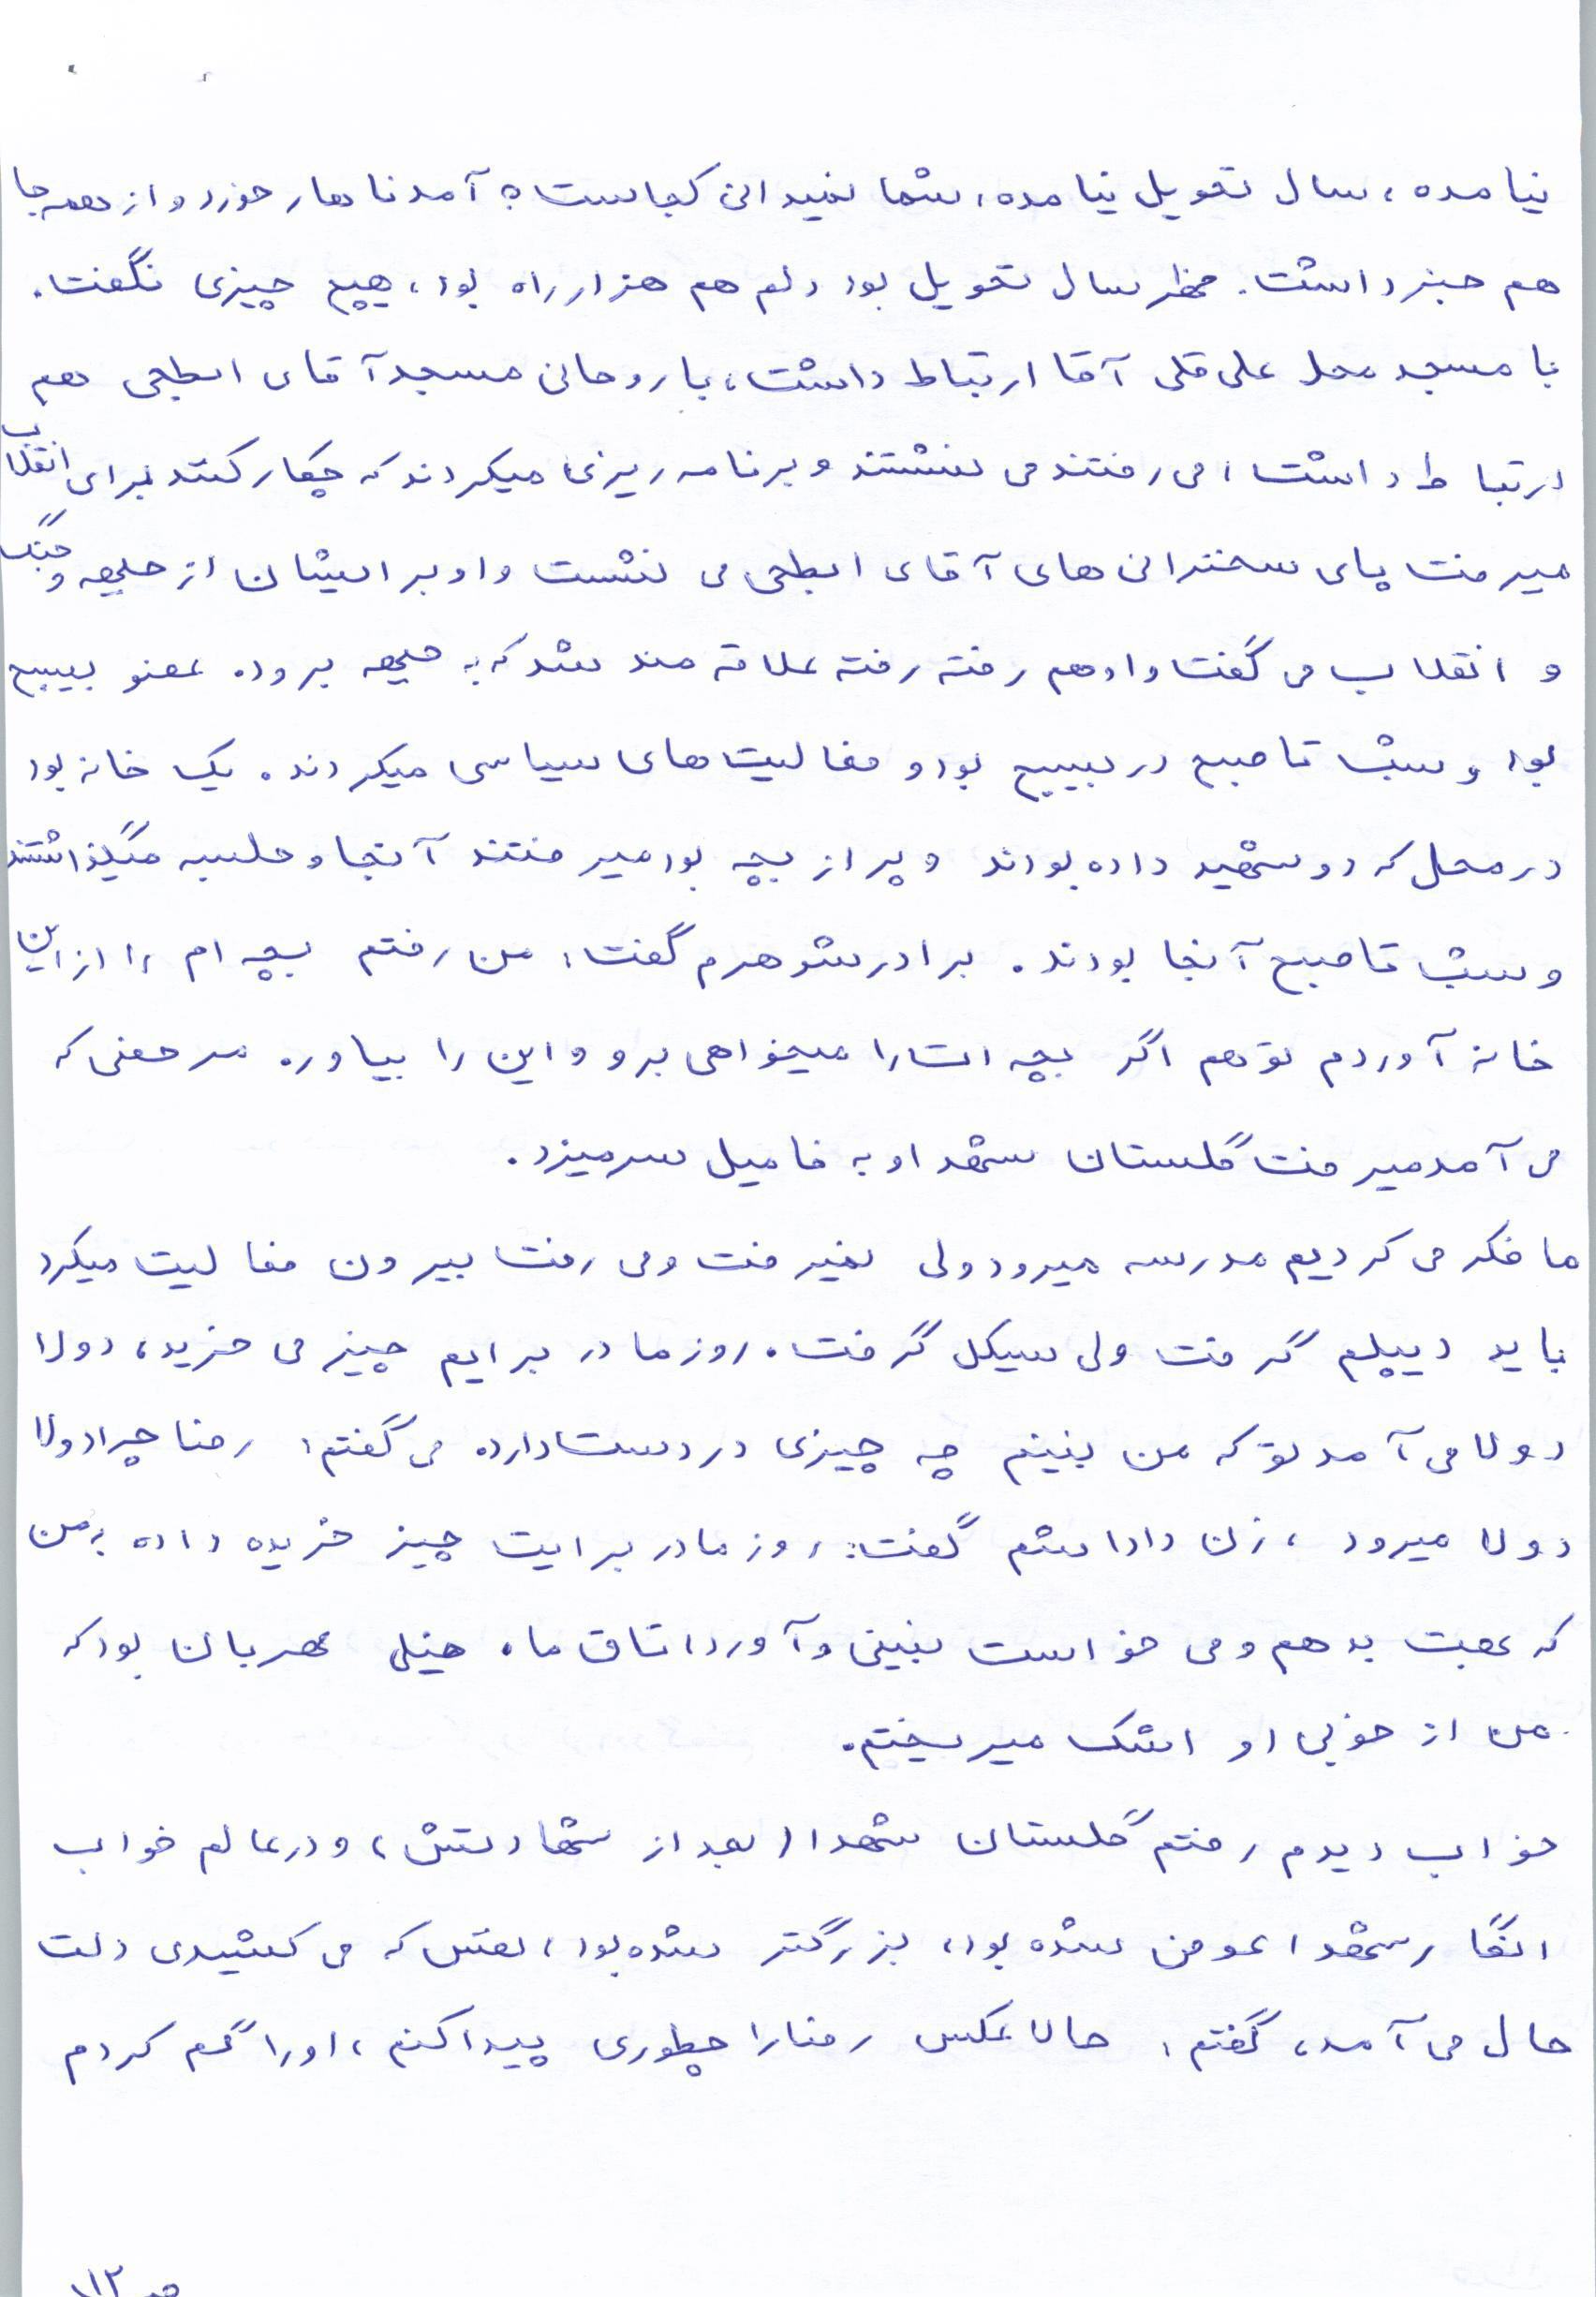 نیامده، سال تحویل نیامده، شما نمیدانی کجاست؟ آمد ناهار خورد و از همه جا
هم خبر داشت. ظهر سال تحویل بود دلم هم هزار راه بود، هیچ چیزی نگفت.
با مسجد محله علی قلی آقا ارتباط داشت، با روحانی مسجد آقای ابطحی هم
ارتباط داشت، می رفتند می نشستند و برنامه ریزی میکردند که چکار کنند برای انقلاب
میرفت پای سخنرانی های آقای ابطحی می نشست و او برایشان از جبهه و جنگ
و انقلاب می گفت و او هم رفته رفته علاقه مند شد که به جبهه برود. عضو بسیج
بود و شب تا صبح در بسیج بود و فعالیت های سیاسی میکردند. یک خانه بود
در محل که دو شهید داده بودند و پر از بچه بود میرفتند آنجا و جلسه میگذاشتند
و شب تا صبح آنجا بودند. برادر شوهرم گفت: من رفتم بچه ام را از این
خانه آوردم تو هم اگر بچه ات را میخواهی برو و این را بیاور. مرخصی که
می آمد میرفت گلستان شهدا و به فامیل سر میزد.
ما فکر می کردیم مدرسه میرود ولی نمیرفت و می رفت بیرون فعالیت میکرد
باید دیپلم گرفت ولی سیکل گرفت. روز مادر برایم چیز می خرید، دولا
دولا می آمد تو که من نبینم چه چیزی در دست دارد. می گفتم: رضا چرا دولا
دولا میرود، زن داداشم گفت: روز مادر برایت چیز خریده داده به من
که بهت بدهم و می خواست نبینی و آورد اتاق ما. خیلی مهربان بود که
من از خوبی او اشک میریختم.
خواب دیدم رفتم گلستان شهدا (بعد از شهادتش) و در عالم خواب
انگار شهدا عوض شده بود، بزرگتر شده بود، نفس که می کشیدی دلت
حال می آمد، گفتم: حالا عکس رضا را چطوری پیدا کنم، او را گم کردم
ص ۱۱۲